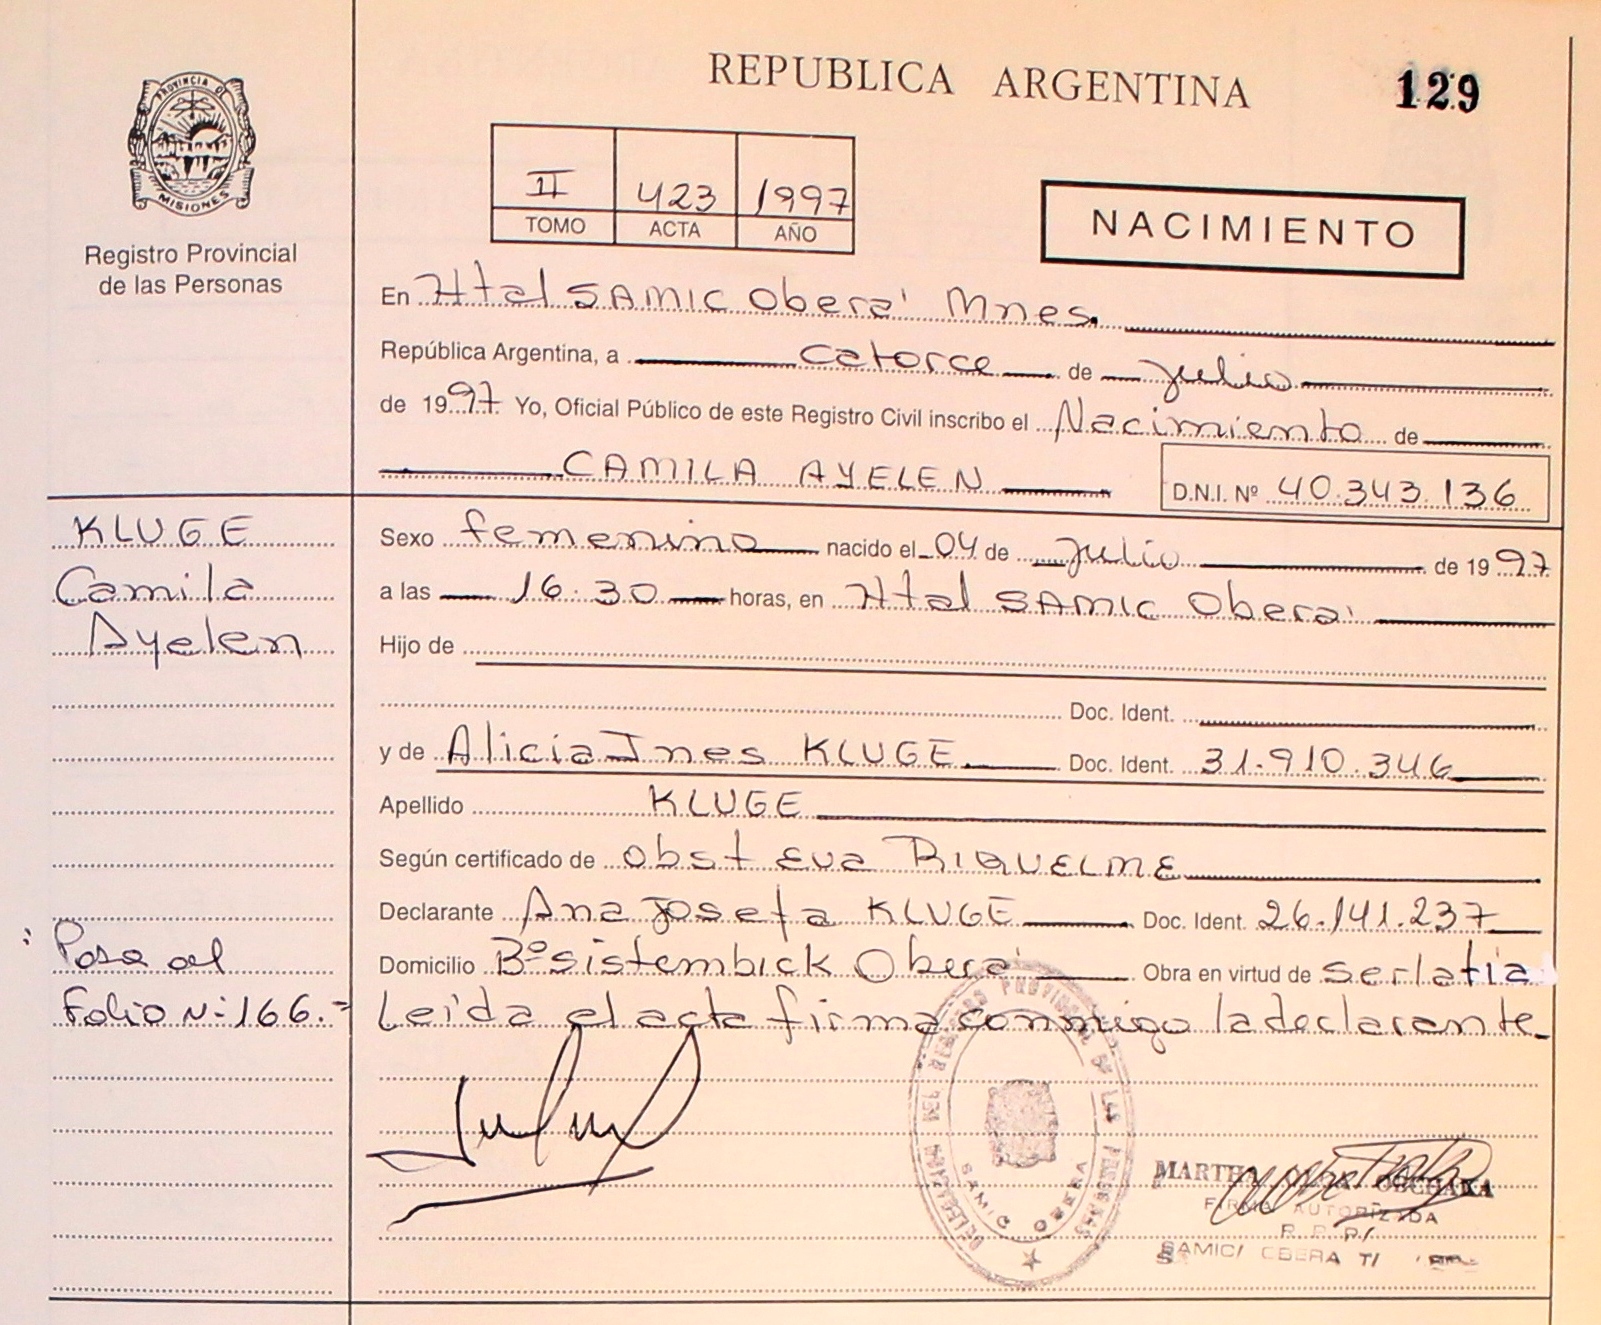 REPUBLICA ARGENTINA
129
PROVINCIA DE
MISIONES
Registro Provincial
de las Personas
II 423 1997
TOMO ACTA AÑO
NACIMIENTO
En Htal SAMIC Oberá Mnes.
República Argentina, a catorce de julio
de 1997 Yo, Oficial Público de este Registro Civil inscribo el Nacimiento de
CAMILA AYELEN D.N.I. Nº 40.343.136
KLUGE
Camila
Ayelen
Sexo femenino nacido el 04 de julio de 1997
a las 16.30 horas, en Htal SAMIC Oberá
Hijo de
Doc. Ident.
y de Alicia Ines KLUGE Doc. Ident. 31.910.346
Apellido KLUGE
Según certificado de Obst Eva RIQUELME
Declarante Ana Josefa KLUGE Doc. Ident. 26.141.237
Domicilio Bº sistembick Oberá Obra en virtud de ser la tia
Leída el acta firma conmigo la declarante
Pasa al
Folio Nº 166.=
DELEGACION DEL REGISTRO PROVINCIAL DE LAS PERSONAS
SAMIC OBERA
MARTHA
FIRMA AUTORIZADA
R. P. P/
SAMIC/ OBERA